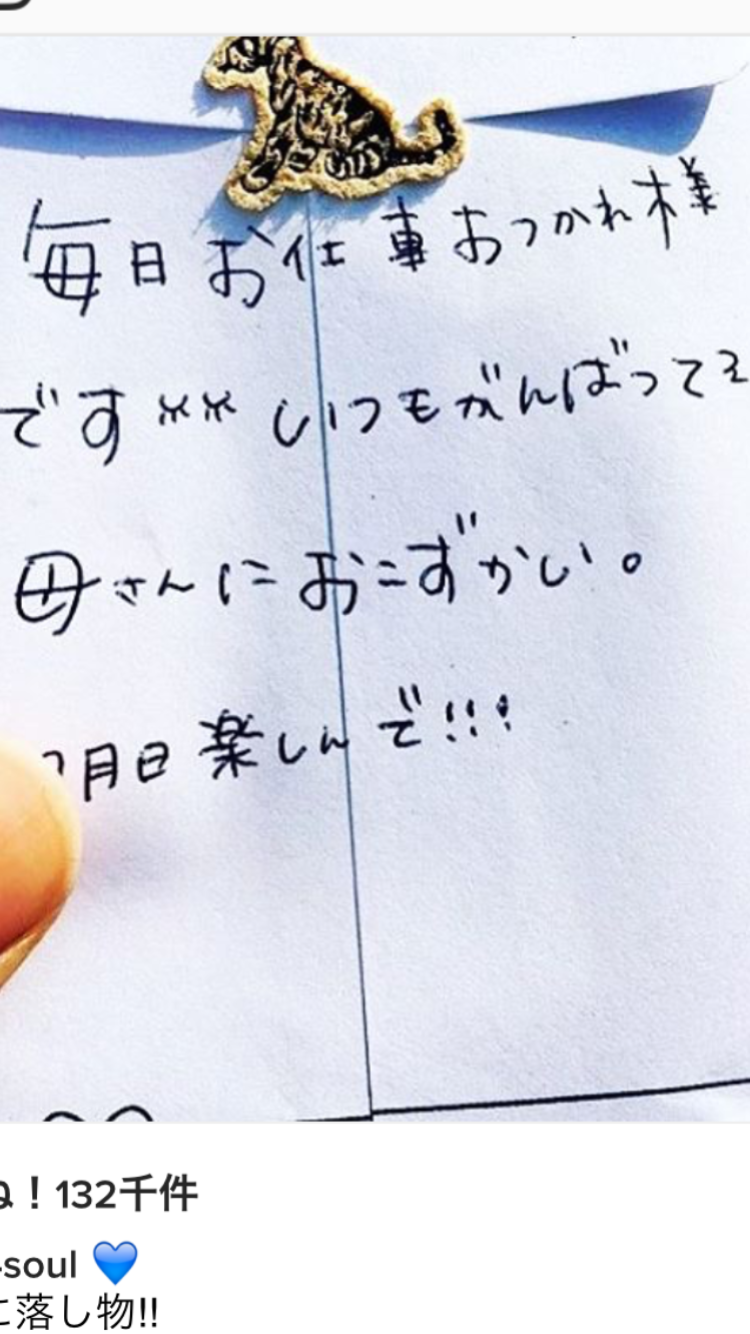 毎日お仕事おつかれ様
です※※ いつもがんばって
母さんにおこずかい。
月日楽しんで!!!
ね！132千件
soul 💙
に落し物!!